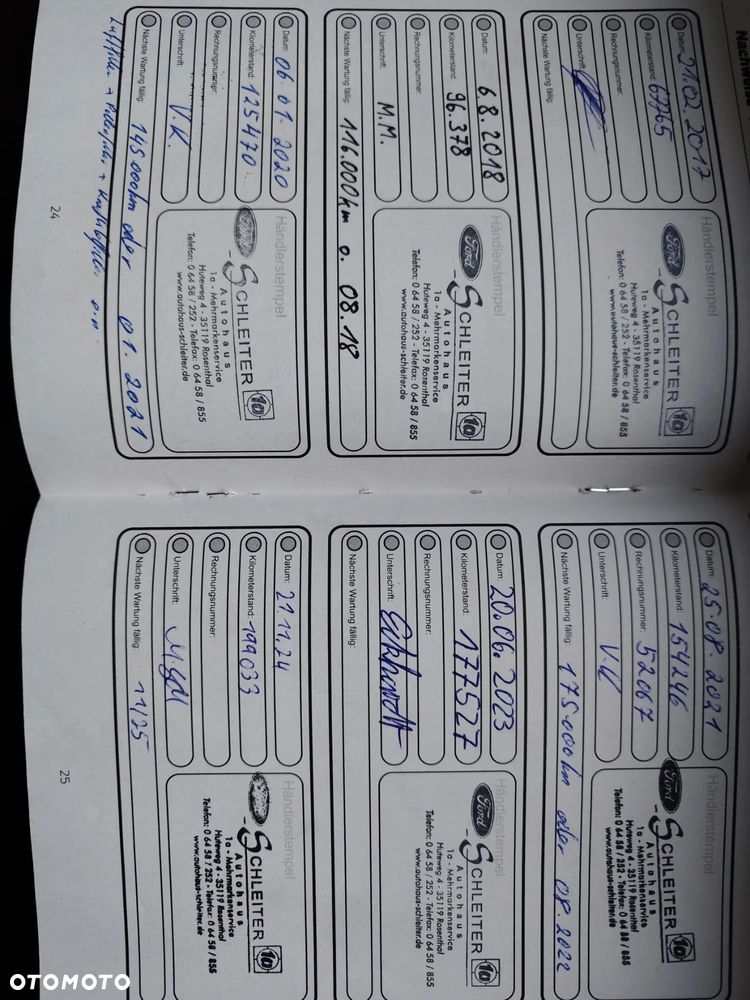 Nachweis
Datum: 21.02.2017
Kilometerstand: 67765
Rechnungsnummer:
Unterschrift:
Nächste Wartung fällig:
Händlerstempel
Ford
SCHLEITER 1a
Autohaus
1a - Mehrmarkenservice
Huteweg 4 - 35119 Rosenthal
Telefon: 0 64 58 / 252 - Telefax: 0 64 58 / 855
www.autohaus-schleiter.de
Datum: 6.8.2018
Kilometerstand: 96.378
Rechnungsnummer:
Unterschrift: M.M.
Nächste Wartung fällig: 116.000km o. 08.18
Händlerstempel
Ford
SCHLEITER 1a
Autohaus
1a - Mehrmarkenservice
Huteweg 4 - 35119 Rosenthal
Telefon: 0 64 58 / 252 - Telefax: 0 64 58 / 855
www.autohaus-schleiter.de
Datum: 06.01.2020
Kilometerstand: 125470
Rechnungsnummer:
Unterschrift: V.K.
Nächste Wartung fällig: 145000km oder 01.2021
Händlerstempel
Ford
SCHLEITER 1a
Autohaus
1a - Mehrmarkenservice
Huteweg 4 - 35119 Rosenthal
Telefon: 0 64 58 / 252 - Telefax: 0 64 58 / 855
www.autohaus-schleiter.de
24
Datum: 25.08.2021
Kilometerstand: 154246
Rechnungsnummer: 52067
Unterschrift: V.K
Nächste Wartung fällig: 175000km oder 08.2022
Händlerstempel
Ford
SCHLEITER 1a
Autohaus
1a - Mehrmarkenservice
Huteweg 4 - 35119 Rosenthal
Telefon: 0 64 58 / 252 - Telefax: 0 64 58 / 855
www.autohaus-schleiter.de
Datum: 20.06.2023
Kilometerstand: 177527
Rechnungsnummer:
Unterschrift: Eckhardt
Nächste Wartung fällig:
Händlerstempel
Ford
SCHLEITER 1a
Autohaus
1a - Mehrmarkenservice
Huteweg 4 - 35119 Rosenthal
Telefon: 0 64 58 / 252 - Telefax: 0 64 58 / 855
www.autohaus-schleiter.de
Datum: 21.11.24
Kilometerstand: 199033
Rechnungsnummer:
Unterschrift:
Nächste Wartung fällig: 11/25
Händlerstempel
SCHLEITER 1a
Autohaus
1a - Mehrmarkenservice
Huteweg 4 - 35119 Rosenthal
Telefon: 0 64 58 / 252 - Telefax: 0 64 58 / 855
www.autohaus-schleiter.de
25
OTOMOTO